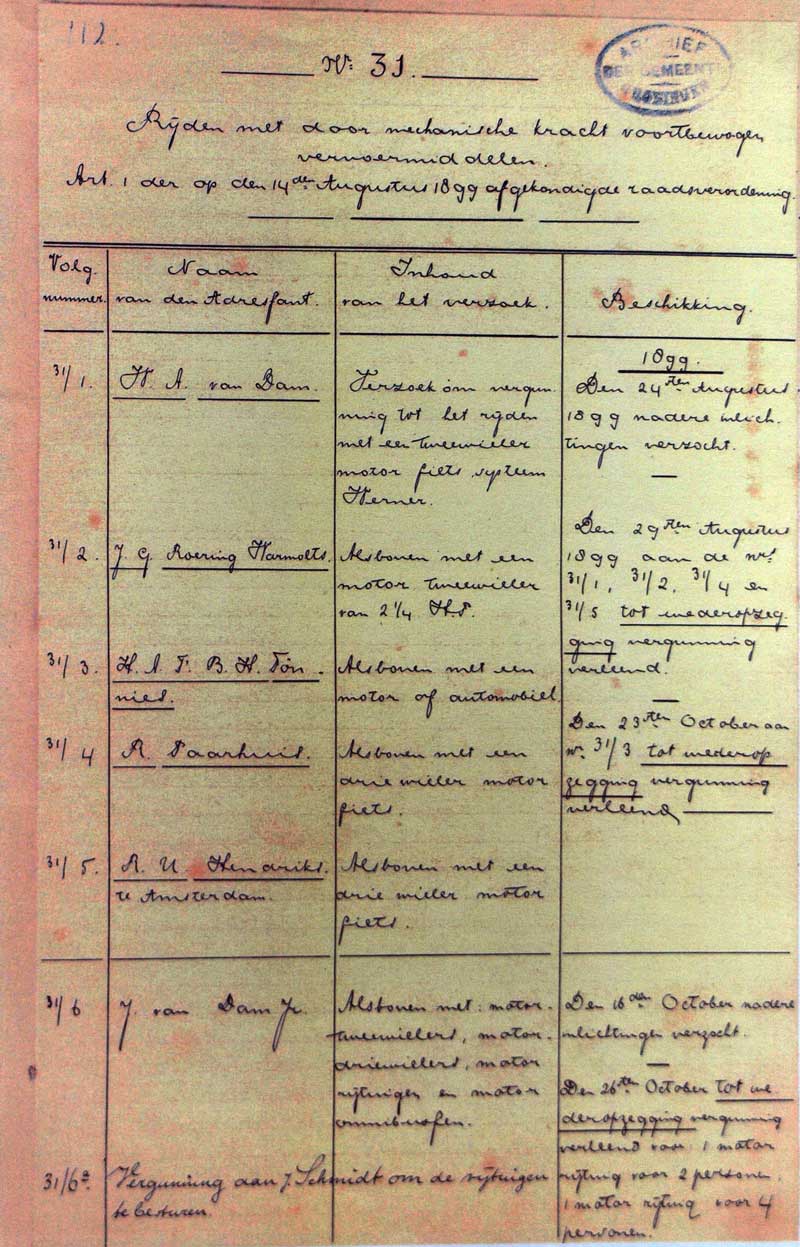 112.
No. 31.
ARCHIEF
DER GEMEENTE
Rijden met door mechanische kracht voortbewogen
vervoermiddelen.
Art. 1 der op den 14den Augustus 1899 afgekondigde raadsverordening.
Volg-
nummer.
Naam
van den Adressant.
Inhoud
van het verzoek.
Beschikking.
31/1.
H. A. van Dam.
Verzoek om vergun-
ning tot het rijden
met een tweewieler
motor fiets, systeem
Werner.
1899.
Den 24sten Augustus
1899 nadere inlich-
tingen verzocht.
31/2.
J. G. Roering Harmolts.
Alsboven met een
motor tweewieler
van 2 1/4 H.P.
Den 29sten Augustus
1899 aan de nrs
31/1, 31/2, 31/4 en
31/5 tot wederopzeg-
ging vergunning
verleend.
31/3.
H. A. F. B. H. Tön-
nies.
Alsboven met een
motor of automobiel.
Den 23sten October aan
nr. 31/3 tot wederop
zegging vergunning
verleend
31/4
R. Paarhuis.
Alsboven met een
driewieler motor
fiets.
31/5.
R. U. Hendriks.
te Amsterdam.
Alsboven met een
driewieler motor
fiets.
31/6
J. van Dam Jr.
Alsboven met: motor-
tweewielers, motor-
driewielers, motor
rijtuigen en motor
omnibussen.
Den 16den October nadere
inlichtingen verzocht.
Den 26sten October tot we-
deropzegging vergunning
verleend voor 1 motor
rijtuig voor 2 personen
1 motor rijtuig voor 4
personen.
31/6a.
Vergunning aan J. Schmidt om de rijtuigen
te besturen.